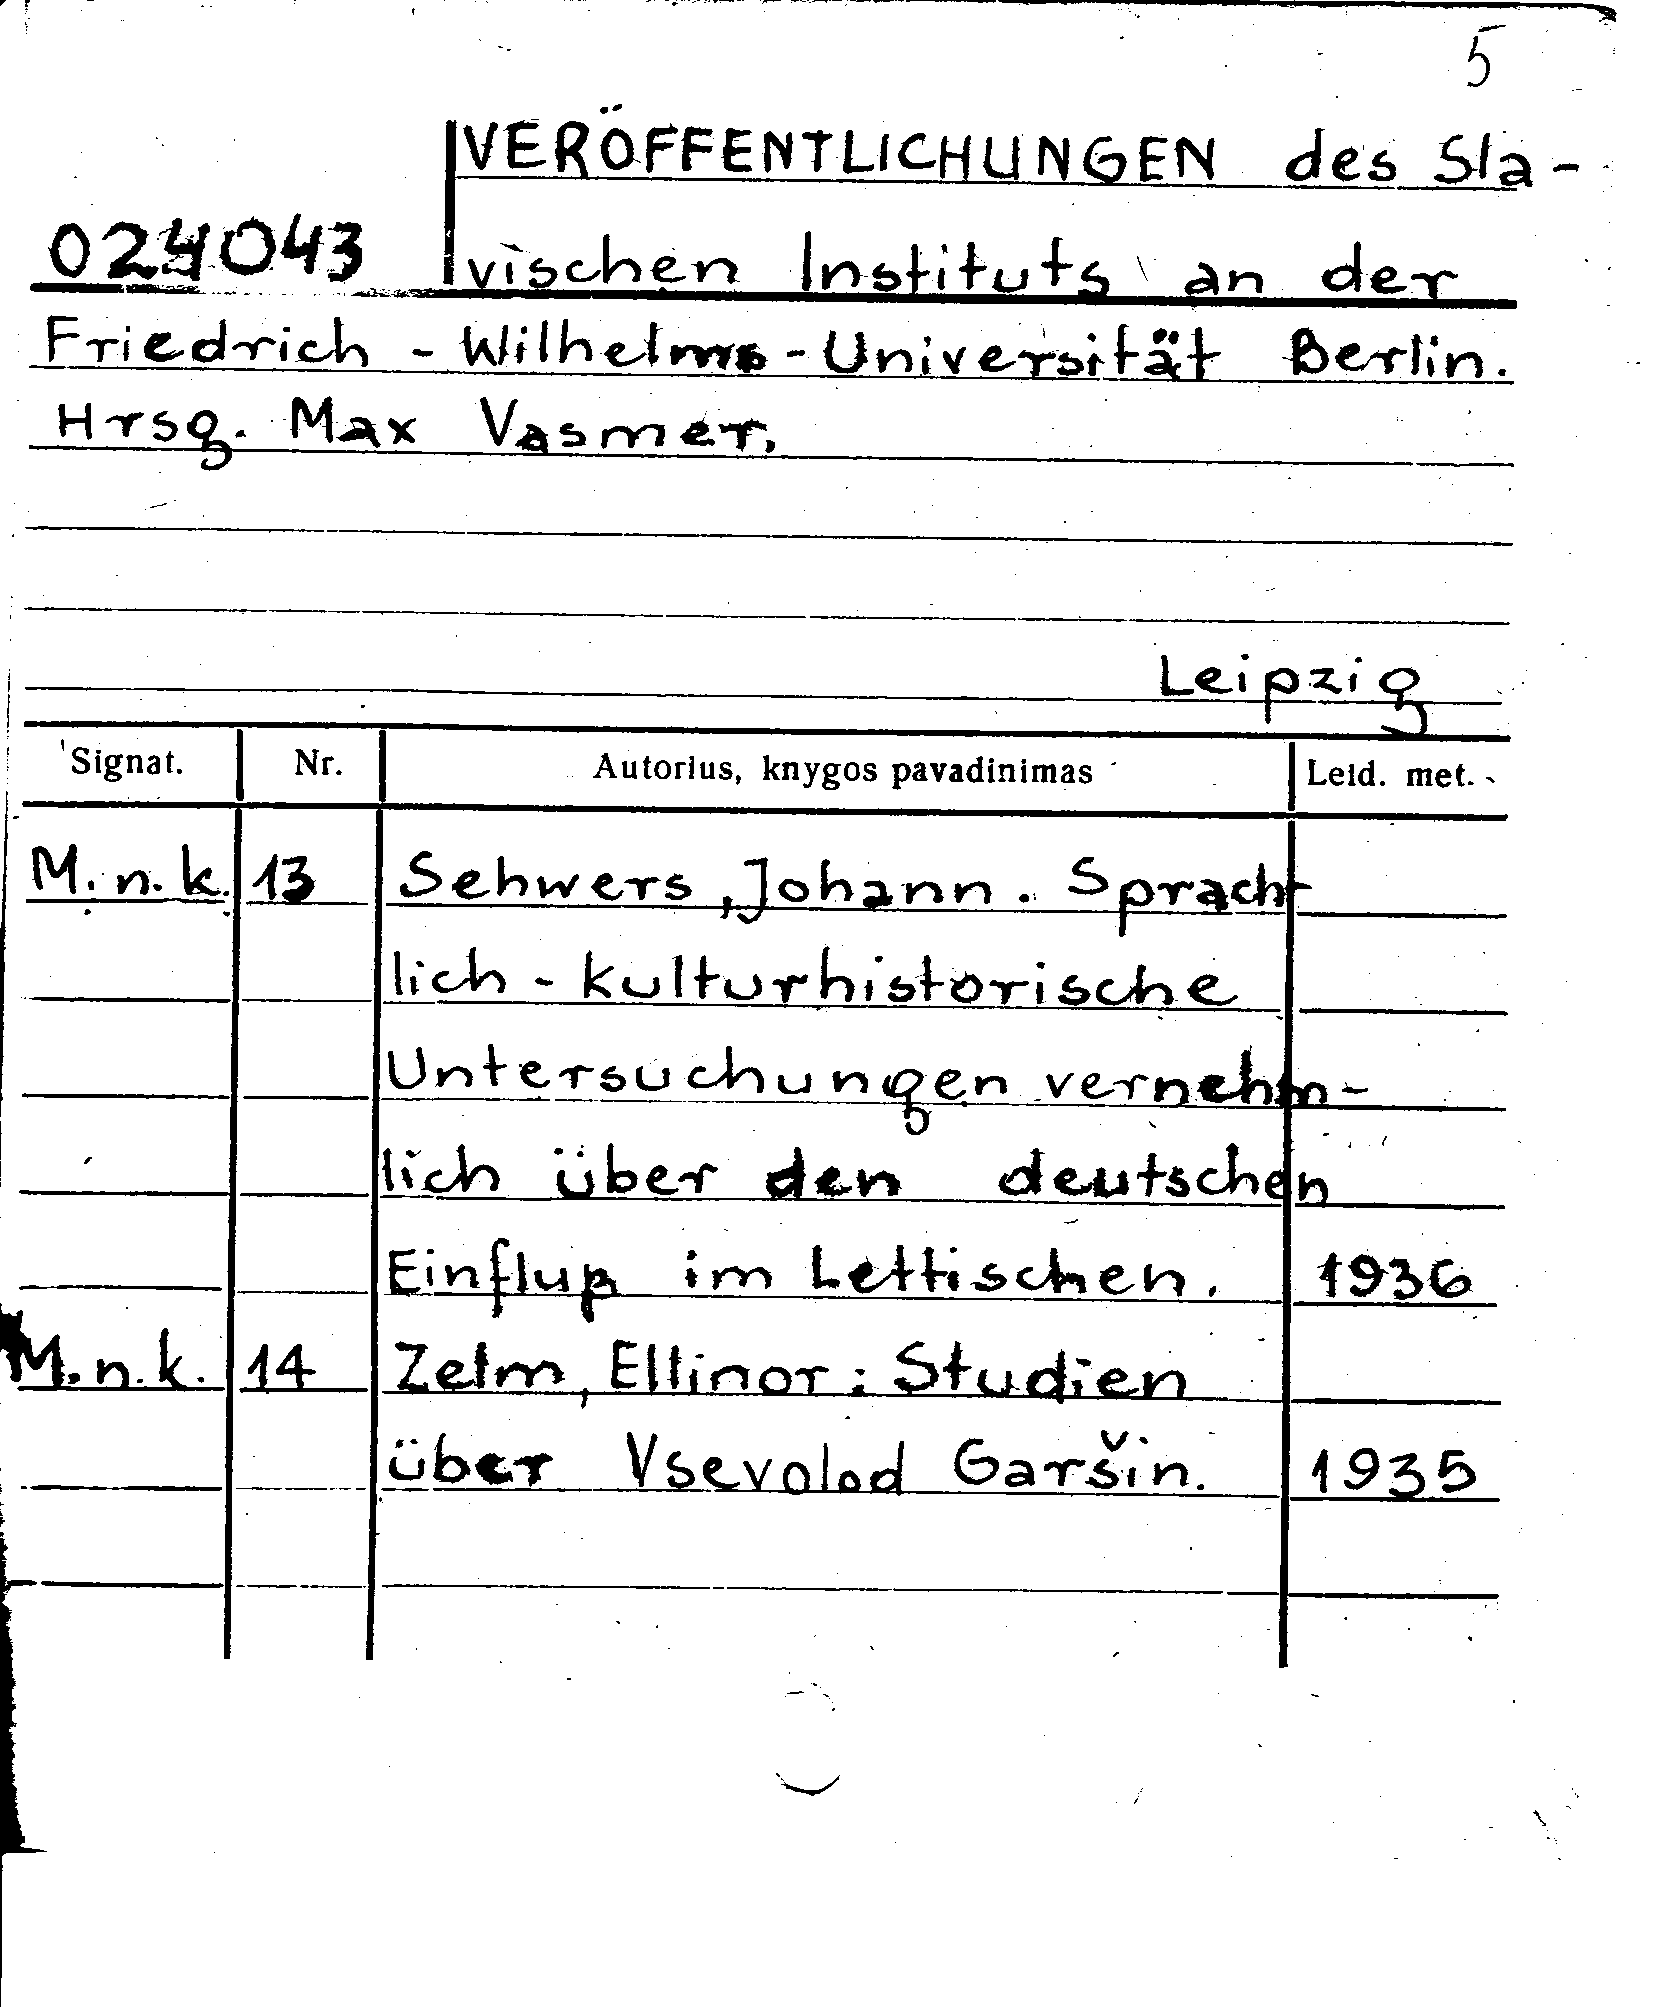 5
VERÖFFENTLICHUNGEN des Sla-
024043
vischen Instituts an der
Friedrich - Wilhelms - Universität Berlin.
Hrsg. Max Vasmer.
Leipzig
Signat. Nr. Autorius, knygos pavadinimas Leid. met.
M. n. k. 13 Sehwers, Johann. Sprach-
lich - kulturhistorische
Untersuchungen vernehm-
lich über den deutschen
Einfluß im Lettischen. 1936
M. n. k. 14 Zelm, Ellinor: Studien
über Vsevolod Garšin. 1935